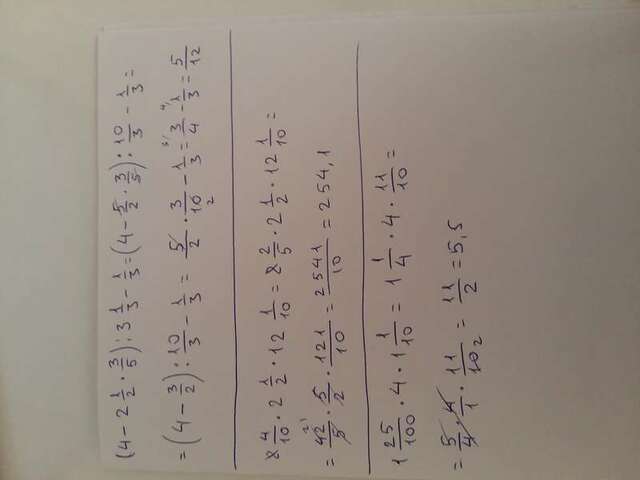 (4 - 2 1/2 · 3/5) : 3 1/3 - 1/3 = (4 - 5/2 · 3/5) : 10/3 - 1/3 =
= (4 - 3/2) : 10/3 - 1/3 = 5/2 · 3/10 2 - 1/3 = 3/ 3/4 - 4/ 1/3 = 5/12
8 4/10 · 2 1/2 · 12 1/10 = 8 2/5 · 2 1/2 · 12 1/10 =
= 42 21/5 · 5/2 · 121/10 = 2541/10 = 254,1
1 25/100 · 4 · 1 1/10 = 1 1/4 · 4 · 11/10 =
= 5/4 · 4/1 · 11/10 2 = 11/2 = 5,5